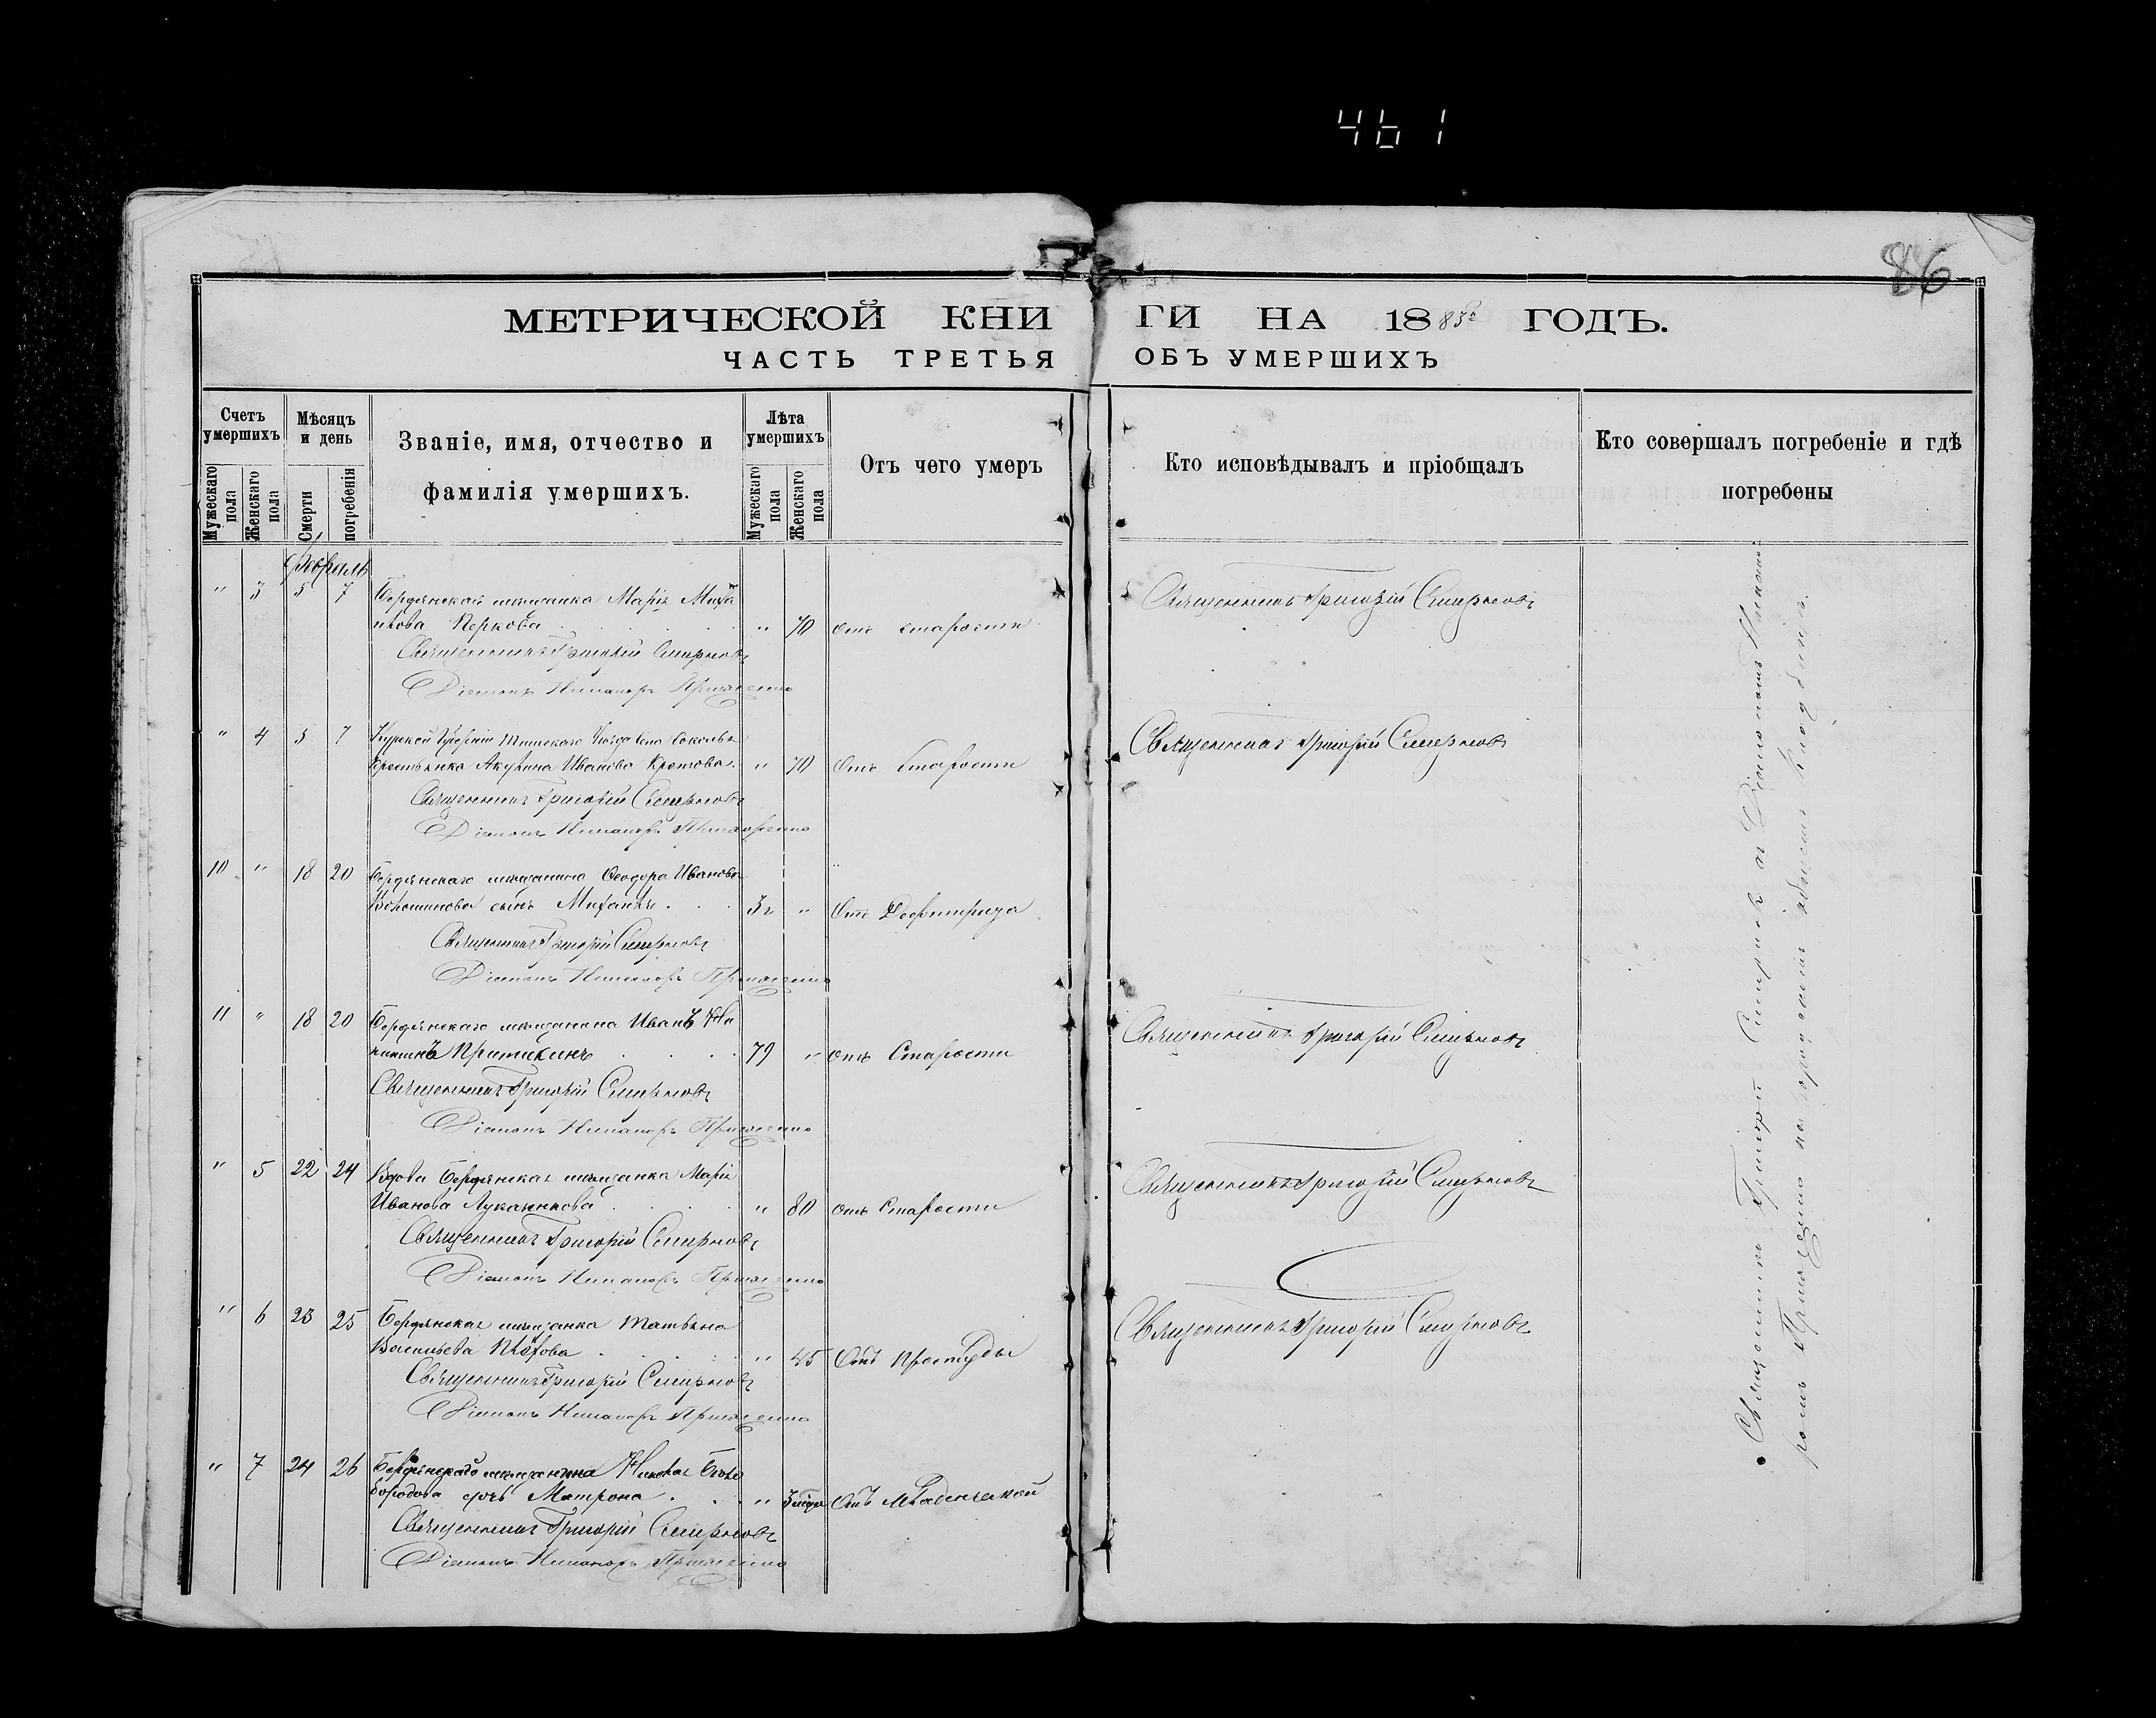 461
86
МЕТРИЧЕСКОЙ КНИГИ НА 1883 ГОДЪ.
ЧАСТЬ ТРЕТЬЯ ОБЪ УМЕРШИХЪ
Счетъ умершихъ
Мужескаго пола
Женскаго пола
Мѣсяцъ и день
Смерти
погребенія
Званіе, имя, отчество и
фамилія умершихъ.
Лѣта умершихъ
Мужескаго пола
Женскаго пола
Отъ чего умеръ
Кто исповѣдывалъ и пріобщалъ
Кто совершалъ погребеніе и гдѣ
погребены
" 3 5 7 Бердянской мѣщанка Марія
Перкова " 70 отъ старости
Священникъ Григорій Смирновъ
Священникъ Григорій Смирновъ
Діаконъ Никаноръ
" 4 5 7 Курской Губерніи Уѣзда Села
Крестьянка Акулина Иванова " 70 Отъ Старости
Священникъ Григорій Смирновъ
Священникъ Григорій Смирновъ
Діаконъ Никаноръ
10 " 18 20 Бердянскаго мѣщанина Ѳеодора Иванова
сынъ Михаилъ 3г " Отъ Дефтирита
Священникъ Григорій Смирновъ
Діаконъ Никаноръ
11 " 18 20 Бердянскаго мѣщанина Иванъ
79 " отъ Старости
Священникъ Григорій Смирновъ
Священникъ Григорій Смирновъ
Діаконъ Никаноръ
" 5 22 24 Вдова Бердянская мѣщанка Марія
Иванова " 80 отъ Старости
Священникъ Григорій Смирновъ
Священникъ Григорій Смирновъ
Діаконъ Никаноръ
" 6 23 25 Бердянская мѣщанка Татьяна
Васильева " 45 Отъ Простуды
Священникъ Григорій Смирновъ
Священникъ Григорій Смирновъ
Діаконъ Никаноръ
" 7 24 26 Бердянскаго мѣщанина Николая Бѣло
бородова дочь Матрона " Отъ Младенческой
Священникъ Григорій Смирновъ
Діаконъ Никаноръ
Священникъ Григорій Смирновъ и Діаконъ Никано
ромъ на городскомъ общемъ кладбищѣ.